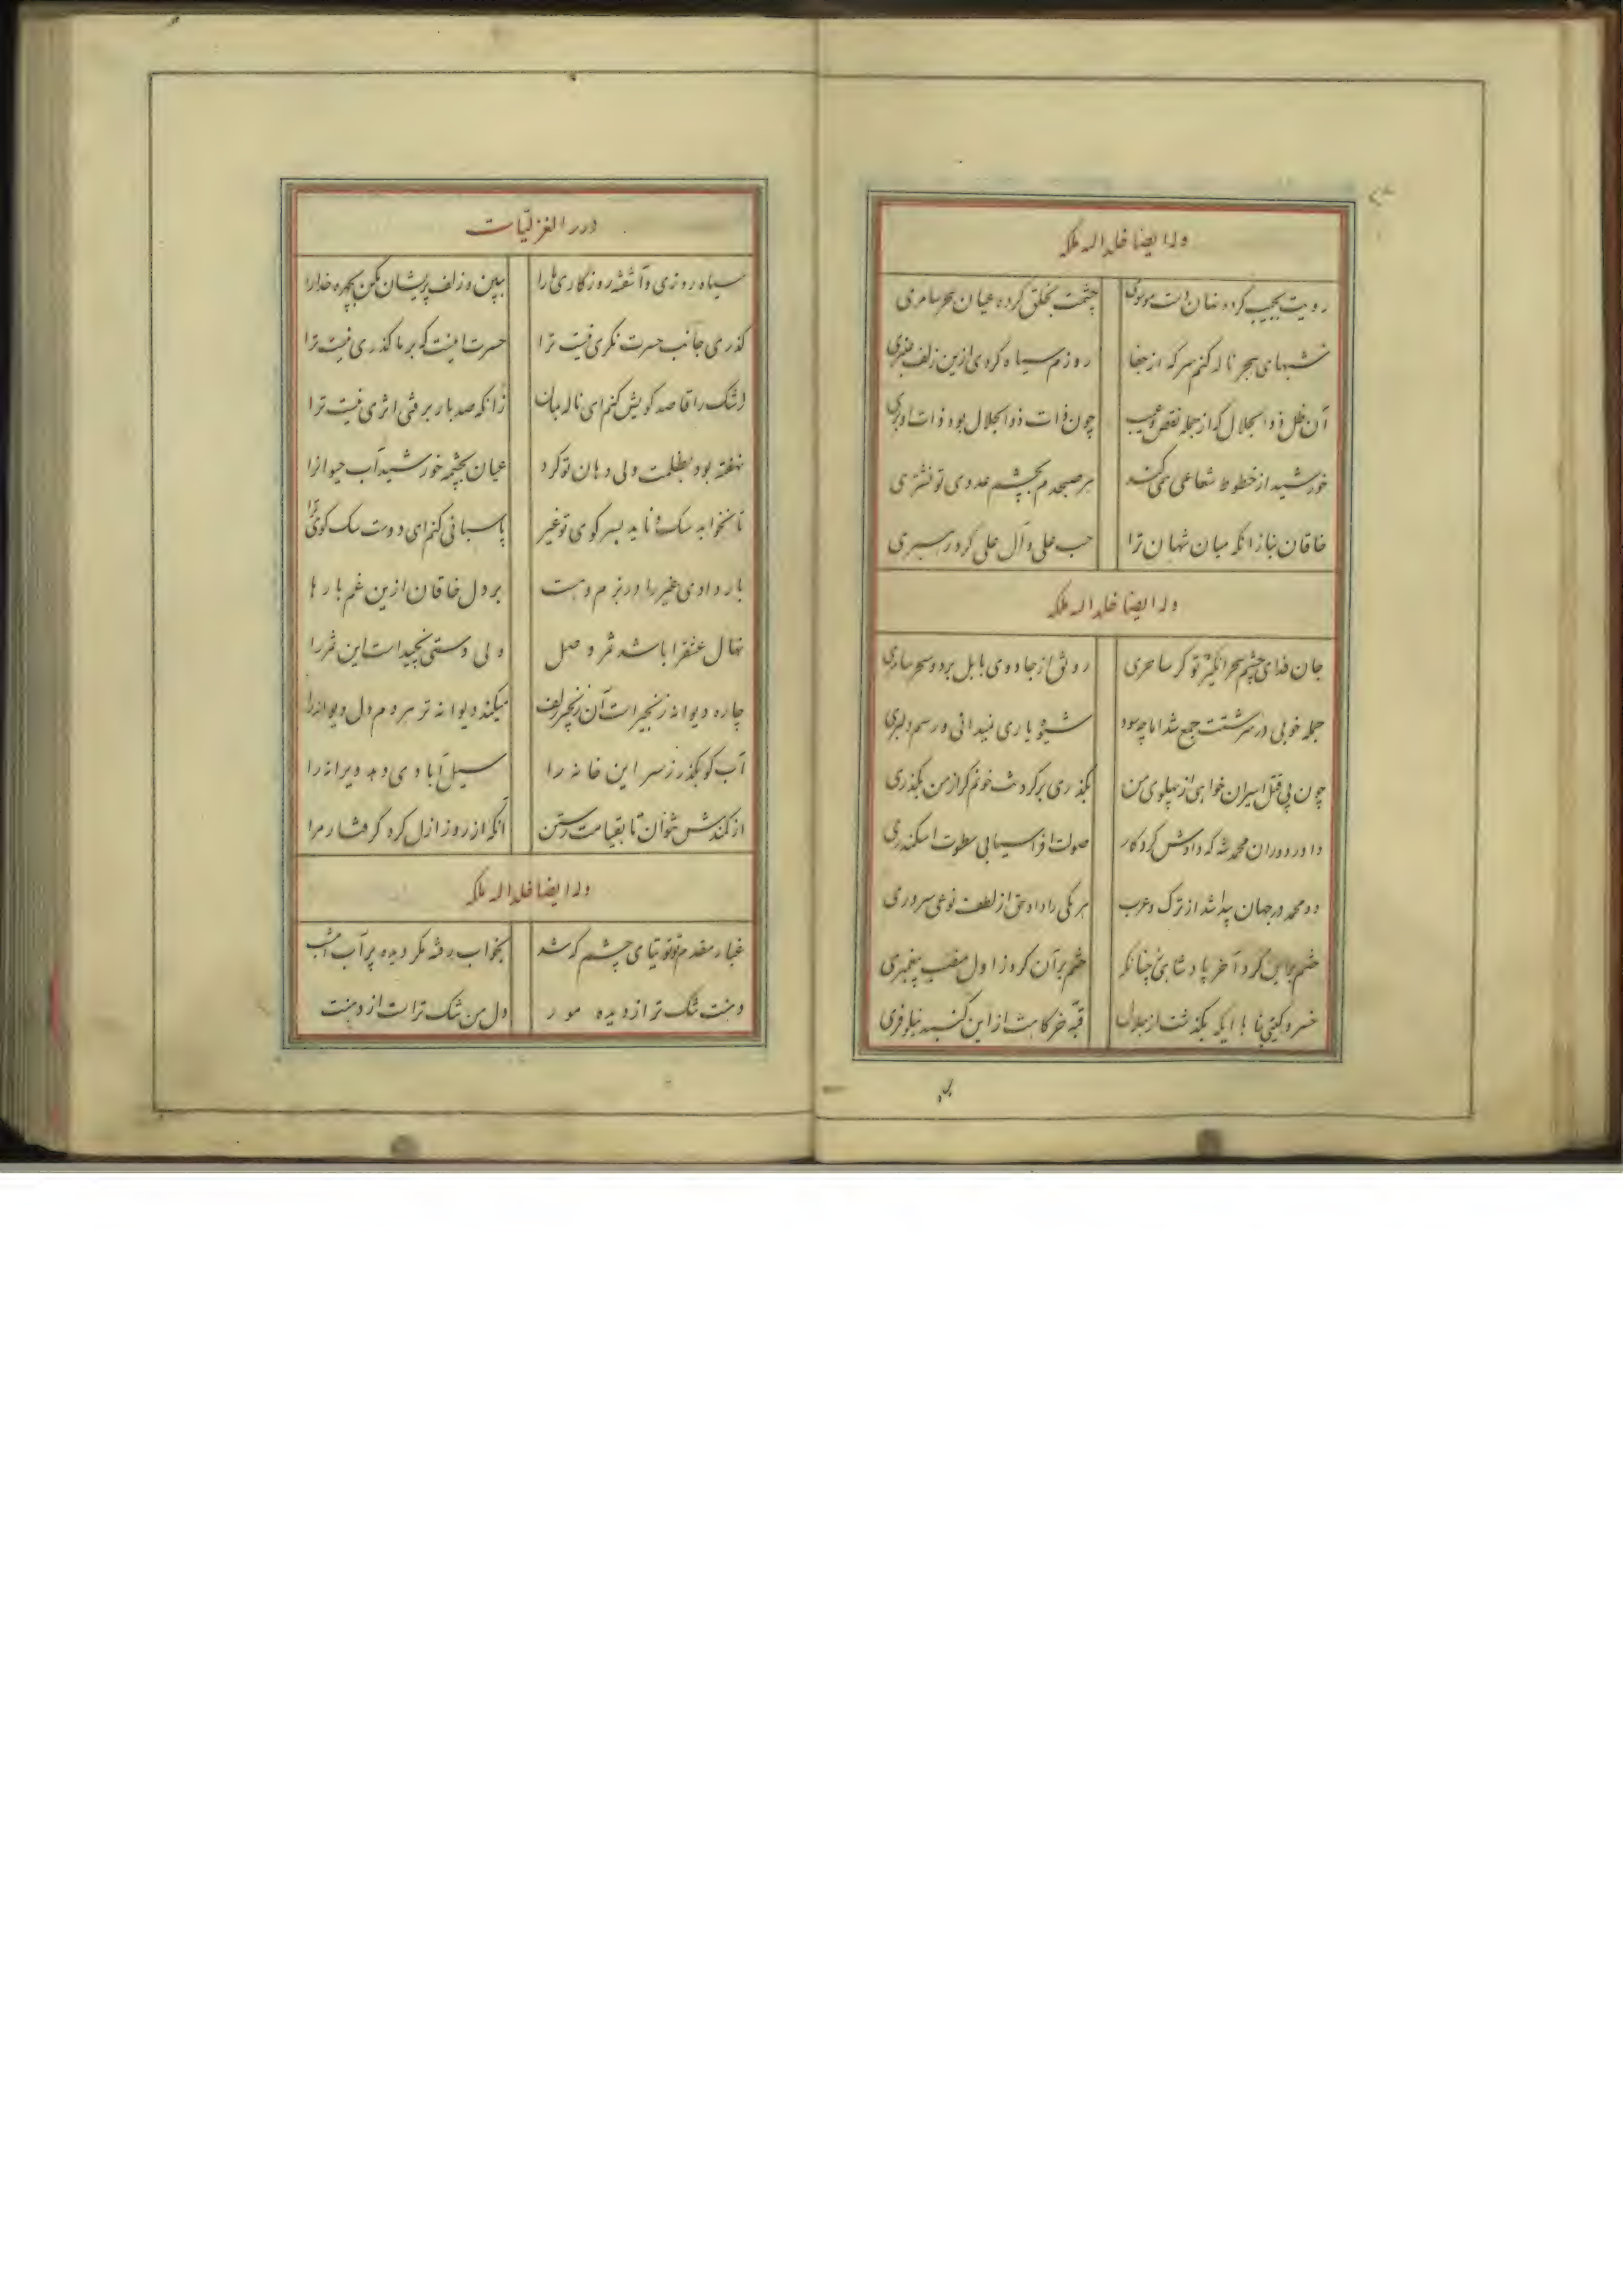 وله ایضا خلد الله ملکه
رویت بجیب کرده نهان دست موسوی چشمت بخلق کرده عیان سحر سامری
شبهای هجر ناله کنم سر که از جفا روزم سیاه کردی ازین زلف عنبری
آن ظل ذوالجلال که از جمله نقص و عیب چون ذات ذوالجلال بود ذات او بری
خورشید از خطوط شعاعی همی کشد هر صبحدم بچشم عدوی تو نشتری
خاقان بناز انکه میان شهان ترا حب علی و آل علی کرد رسروری
وله ایضا خلد الله ملکه
جان فدای چشم سحر انگیز تو کز ساحری رونق از جادوی بابل برد و سحر سامری
جمله خوبی در سرشتت جمع شد اما چه سود شیوه یاری نمیدانی و رسم دلبری
چون پی قتل اسیران خواهی از پهلوی من بگذری برگردنت خونم گر از من بگذری
داور دوران محمد شه که دادش کردکار صولت افراسیابی سطوت اسکندری
دو محمد در جهان پیدا شد از ترک و عرب هر یکی را داد حق از لطف نوعی سروری
ختم بر این کرد آخر پادشاهی چنانکه ختم بر آن کرد ز اول منصب پیغمبری
خسرو گیتی پناها ایکه بگذشت از جلال قبه خرگاهت از این گنبد نیلوفری
در الغزلیات
سیاه روزی و آشفته روزکاری ما را ببین و زلف پریشان مکن بچهره خدارا
گذری جانب حسرت نگری نیست ترا حسرت اینست که بر ما گذری نیست ترا
اشک را قاصد کویش کنم ای ناله بمان زانکه صد بار برفتی اثری نیست ترا
نهفته بود بظلمت ولی دهان تو کرد عیان بچشمه خورشید آب حیوانرا
تا نخوابد سک و ناید بسر کوی تو غیر پاسبانی کنم ای دوست سک کوی ترا
بار دادی غیر را در بزم و هست بر دل خاقان ازین غم بارها
نهال عشقرا باشد ثمر وصل ولی دستی نچیدست این ثمر را
چاره دیوانه زنجیر است آن زنجیر زلف میکند دیوانه تر هر دم دل دیوانه را
آب کو بگذر ز سر این خانه را سیل آبادی دهد ویرانه را
از کمندش نتوان تا بقیامت رستن آنکه از روز ازل کرد گرفتار مرا
وله ایضا خلد الله ملکه
غبار مقدم تو توتیای چشم که شد بخواب رفته مگر دیده پر آب امشب
دهنت تنک تر از دیده مور دل من تنک تر است از دهنت